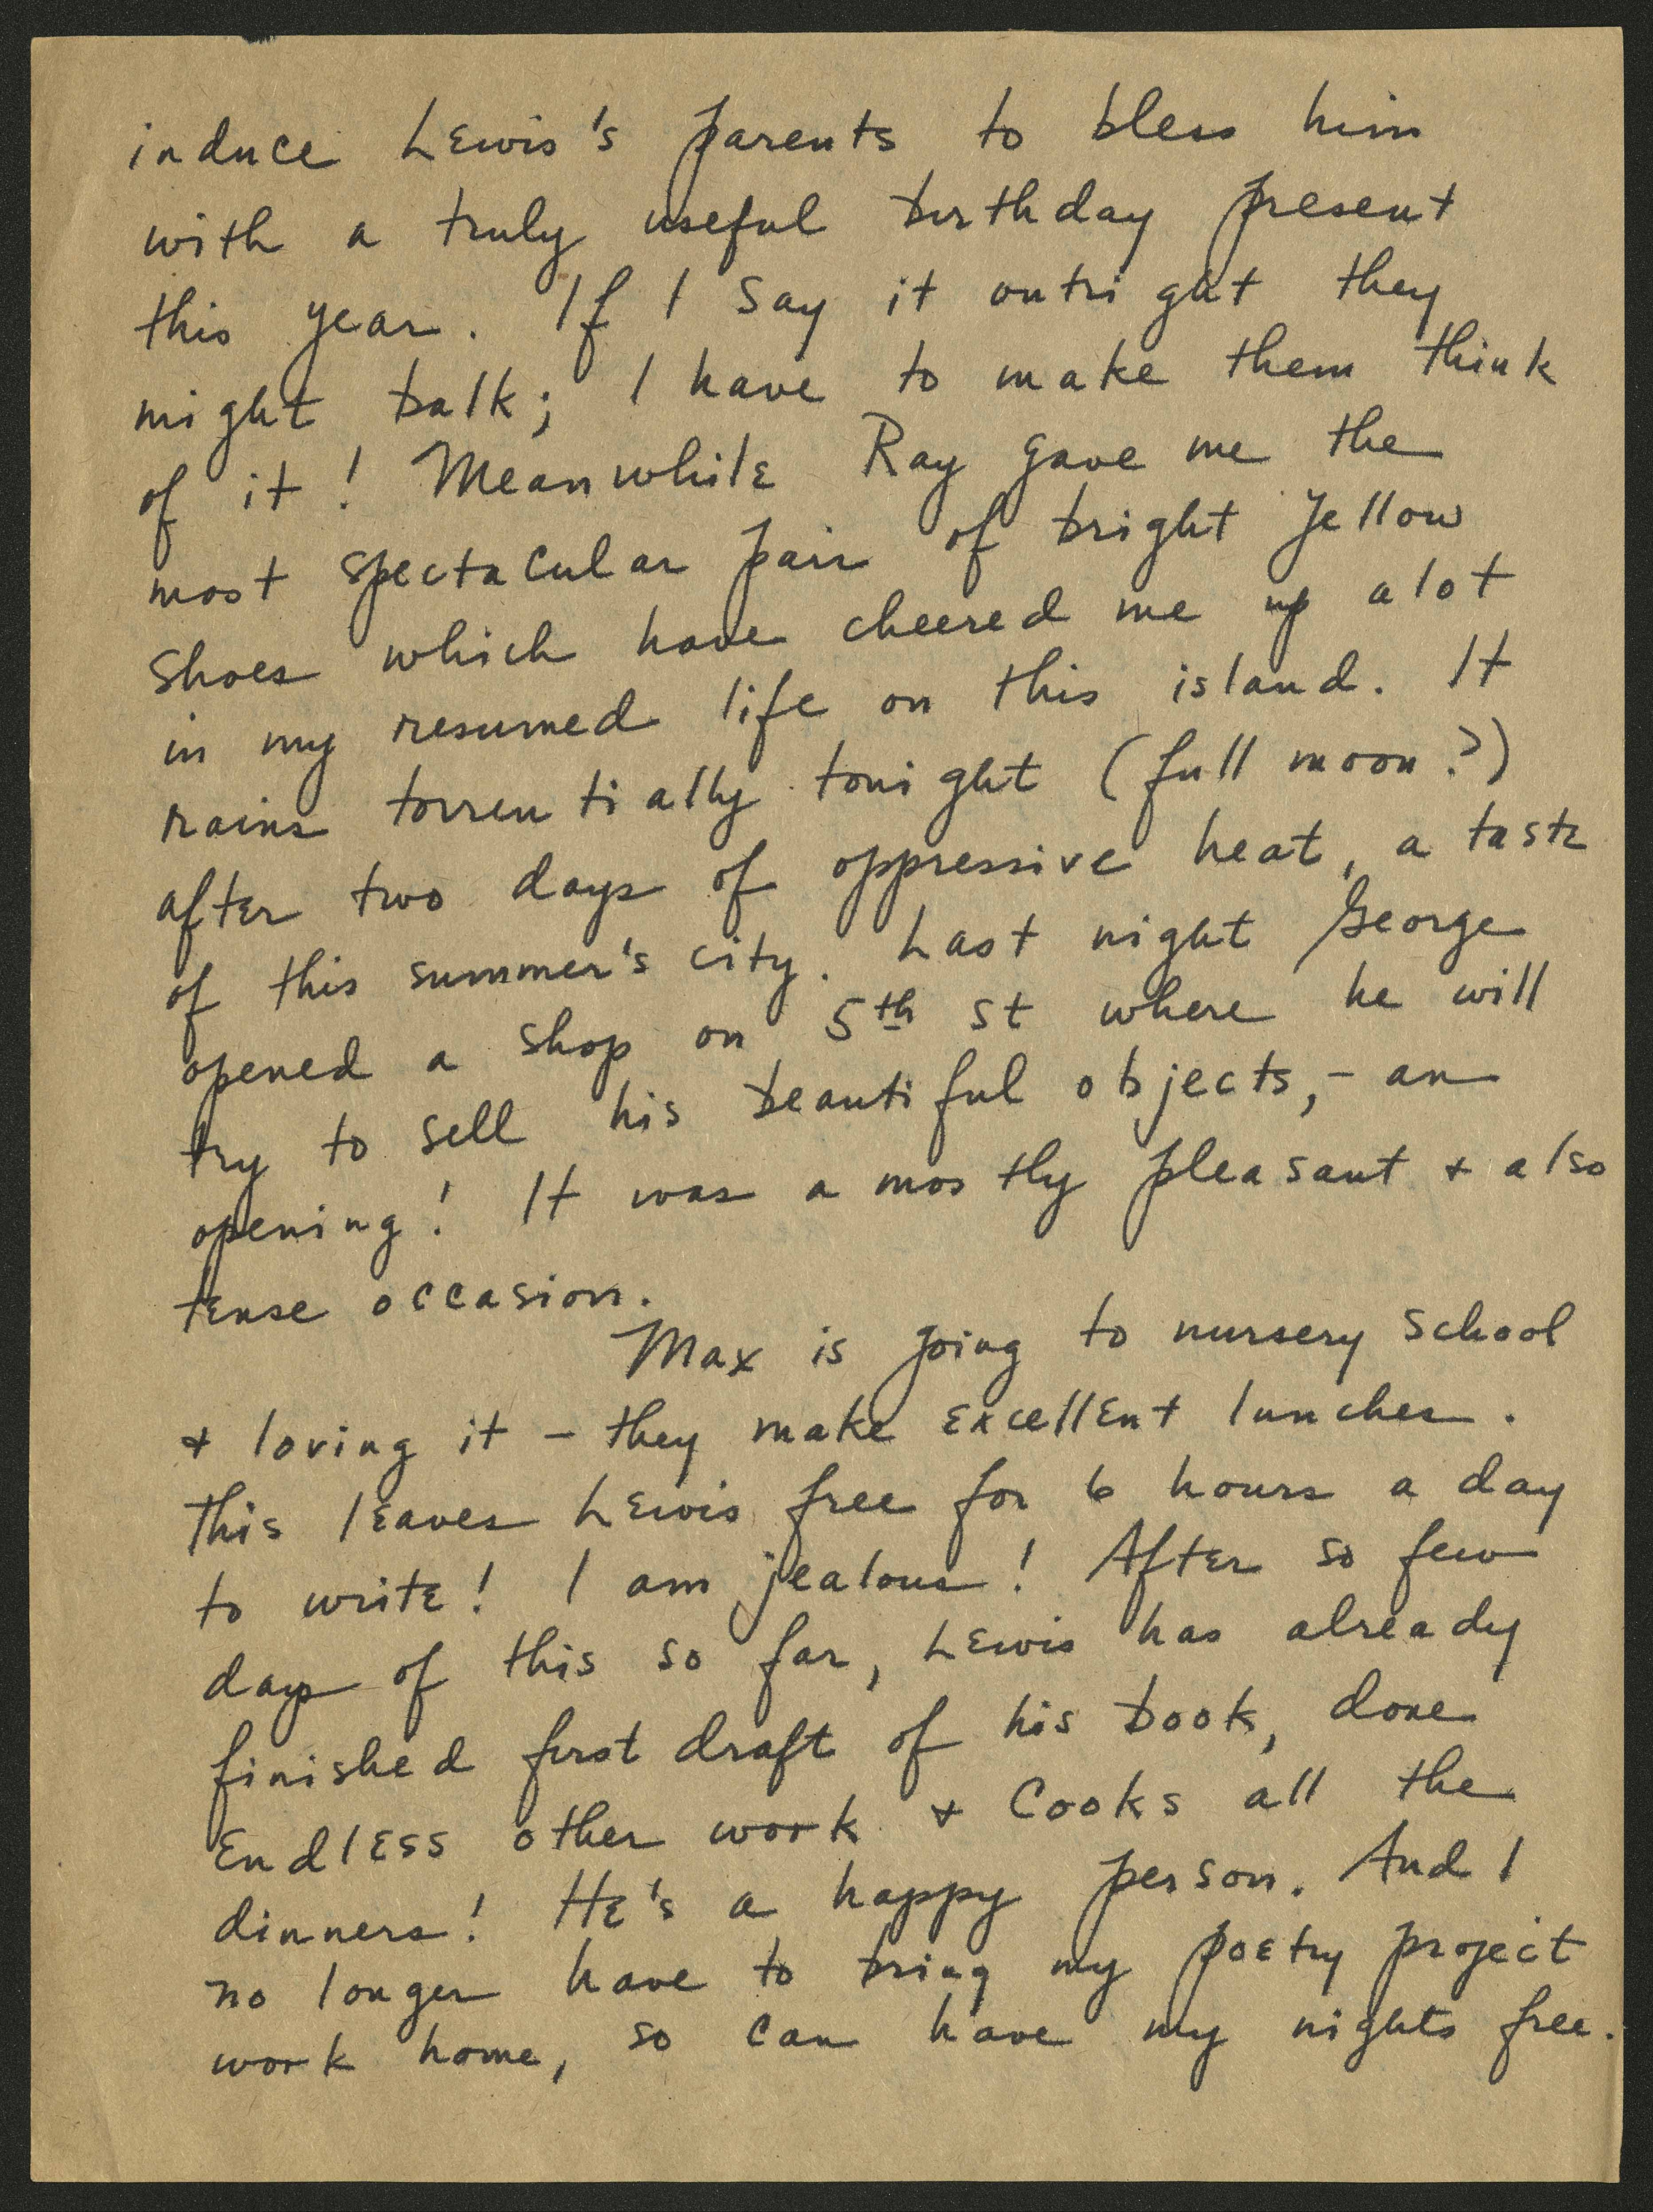 induce Lewis's parents to bless him
with a truly useful birthday present
this year. If I say it outright they
might balk; I have to make them think
of it! Meanwhile Ray gave me the
most spectacular pair of bright yellow
shoes which have cheered me up alot
in my resumed life on this island. It
rains torrentially tonight (full moon?)
after two days of oppressive heat, a taste
of this summer's city. Last night George
opened a shop on 5th st where he will
try to sell his beautiful objects, - an
opening! It was a mostly pleasant + also
tense occasion.
Max is going to nursery school
+ loving it - they make excellent lunches.
This leaves Lewis free for 6 hours a day
to write! I am jealous! After so few
days of this so far, Lewis has already
finished first draft of his book, done
endless other work + cooks all the
dinners! He's a happy person. And I
no longer have to bring my poetry project
work home, so can have my nights free.